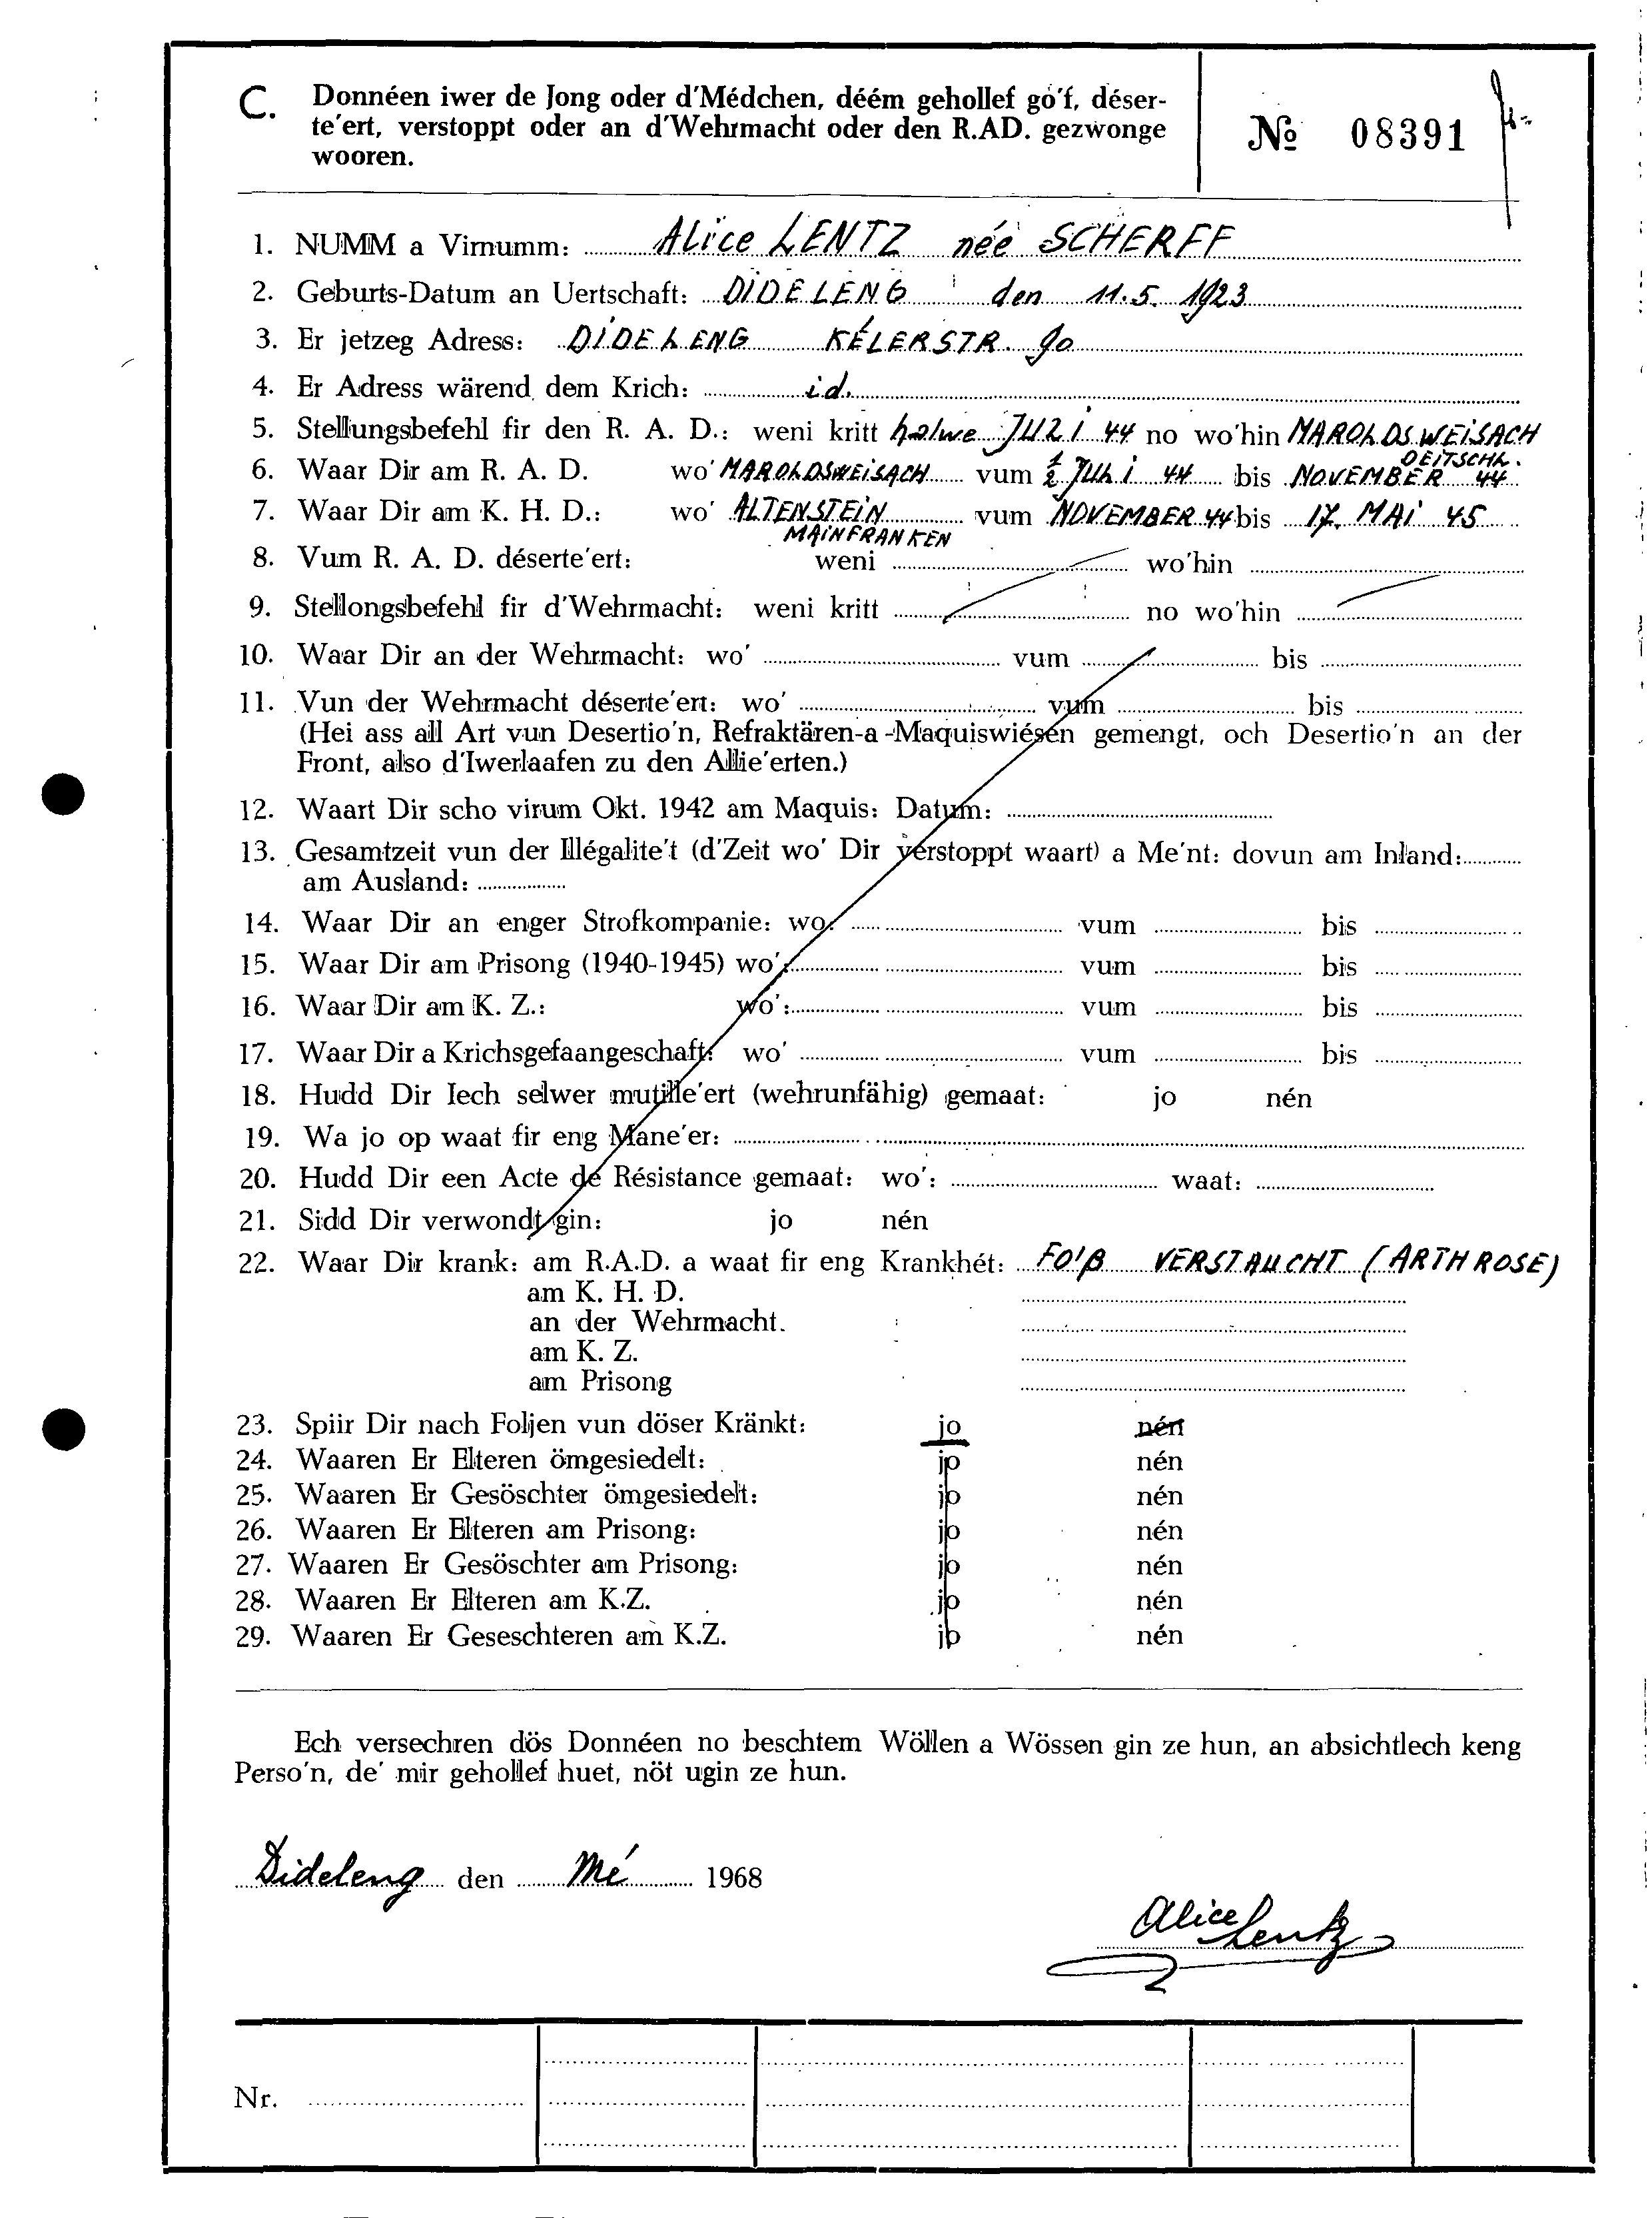 C. Donnéen iwer de Jong oder d'Médchen, déém gehollef go'f, déser-
te'ert, verstoppt oder an d'Wehrmacht oder den R.AD. gezwonge
wooren.
№ 08391
1. NUMM a Virnumm: Alice LENTZ née SCHERFF
2. Geburts-Datum an Uertschaft: DIDELENG den 11.5. 1923
3. Er jetzeg Adress: DIDELENG KÉLERSTR. 90
4. Er Adress wärend dem Krich: id.
5. Stellungsbefehl fir den R. A. D.: weni kritt halwe JULI 44 no wo'hin MAROLDSWEISACH
DEITSCHL.
6. Waar Dir am R. A. D. wo' MAROLDSWEISACH vum ½ JULI 44 bis NOVEMBER 44
7. Waar Dir am K. H. D.: wo' ALTENSTEIN vum NOVEMBER 44 bis 17. MAI 45
MAINFRANKEN
8. Vum R. A. D. déserte'ert: weni wo'hin
9. Stellongsbefehl fir d'Wehrmacht: weni kritt no wo'hin
10. Waar Dir an der Wehrmacht: wo' vum bis
11. Vun der Wehrmacht déserte'ert: wo' vum bis
(Hei ass all Art vun Desertio'n, Refraktären-a-Maquiswiésén gemengt, och Desertio'n an der
Front, also d'Iwerlaafen zu den Allie'erten.)
12. Waart Dir scho virum Okt. 1942 am Maquis: Datum:
13. Gesamtzeit vun der Illégalite't (d'Zeit wo' Dir verstoppt waart) a Me'nt: dovun am Inland:
am Ausland:
14. Waar Dir an enger Strofkompanie: wo: vum bis
15. Waar Dir am Prisong (1940-1945) wo': vum bis
16. Waar Dir am K. Z.: wo': vum bis
17. Waar Dir a Krichsgefaangeschaft: wo' vum bis
18. Hudd Dir Iech selwer mutille'ert (wehrunfähig) gemaat: jo nén
19. Wa jo op waat fir eng Mane'er:
20. Hudd Dir een Acte de Résistance gemaat: wo': waat:
21. Sidd Dir verwondt gin: jo nén
22. Waar Dir krank: am R.A.D. a waat fir eng Krankhét: FO'ß VERSTAUCHT (ARTHROSE)
am K. H. D.
an der Wehrmacht.
am K. Z.
am Prisong
23. Spiir Dir nach Foljen vun döser Kränkt: jo nén
24. Waaren Er Elteren ömgesiedelt: jo nén
25. Waaren Er Gesöschter ömgesiedelt: jo nén
26. Waaren Er Elteren am Prisong: jo nén
27. Waaren Er Gesöschter am Prisong: jo nén
28. Waaren Er Elteren am K.Z. jo nén
29. Waaren Er Geseschteren am K.Z. jo nén
Ech versechren dös Donnéen no beschtem Wöllen a Wössen gin ze hun, an absichtlech keng
Perso'n, de' mir gehollef huet, nöt ugin ze hun.
Dideleng den Mé 1968
Alice Lentz
Nr.